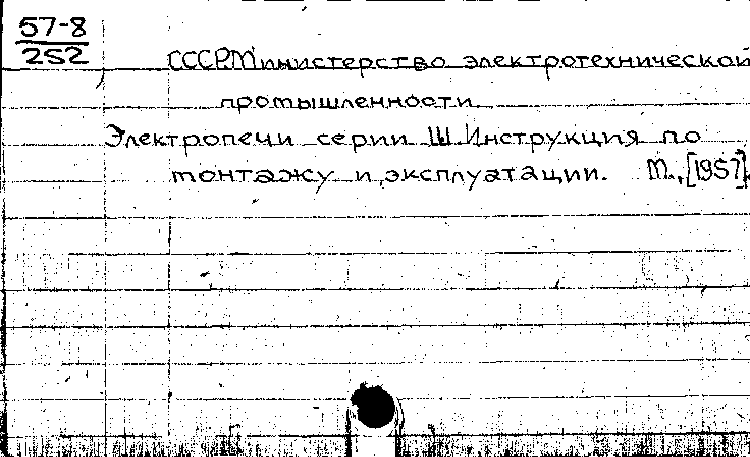 57-8
252
СССР. Министерство электротехнической
промышленности.
Электропечи серии Ш. Инструкция по
монтажу и эксплуатации. М., [1957].